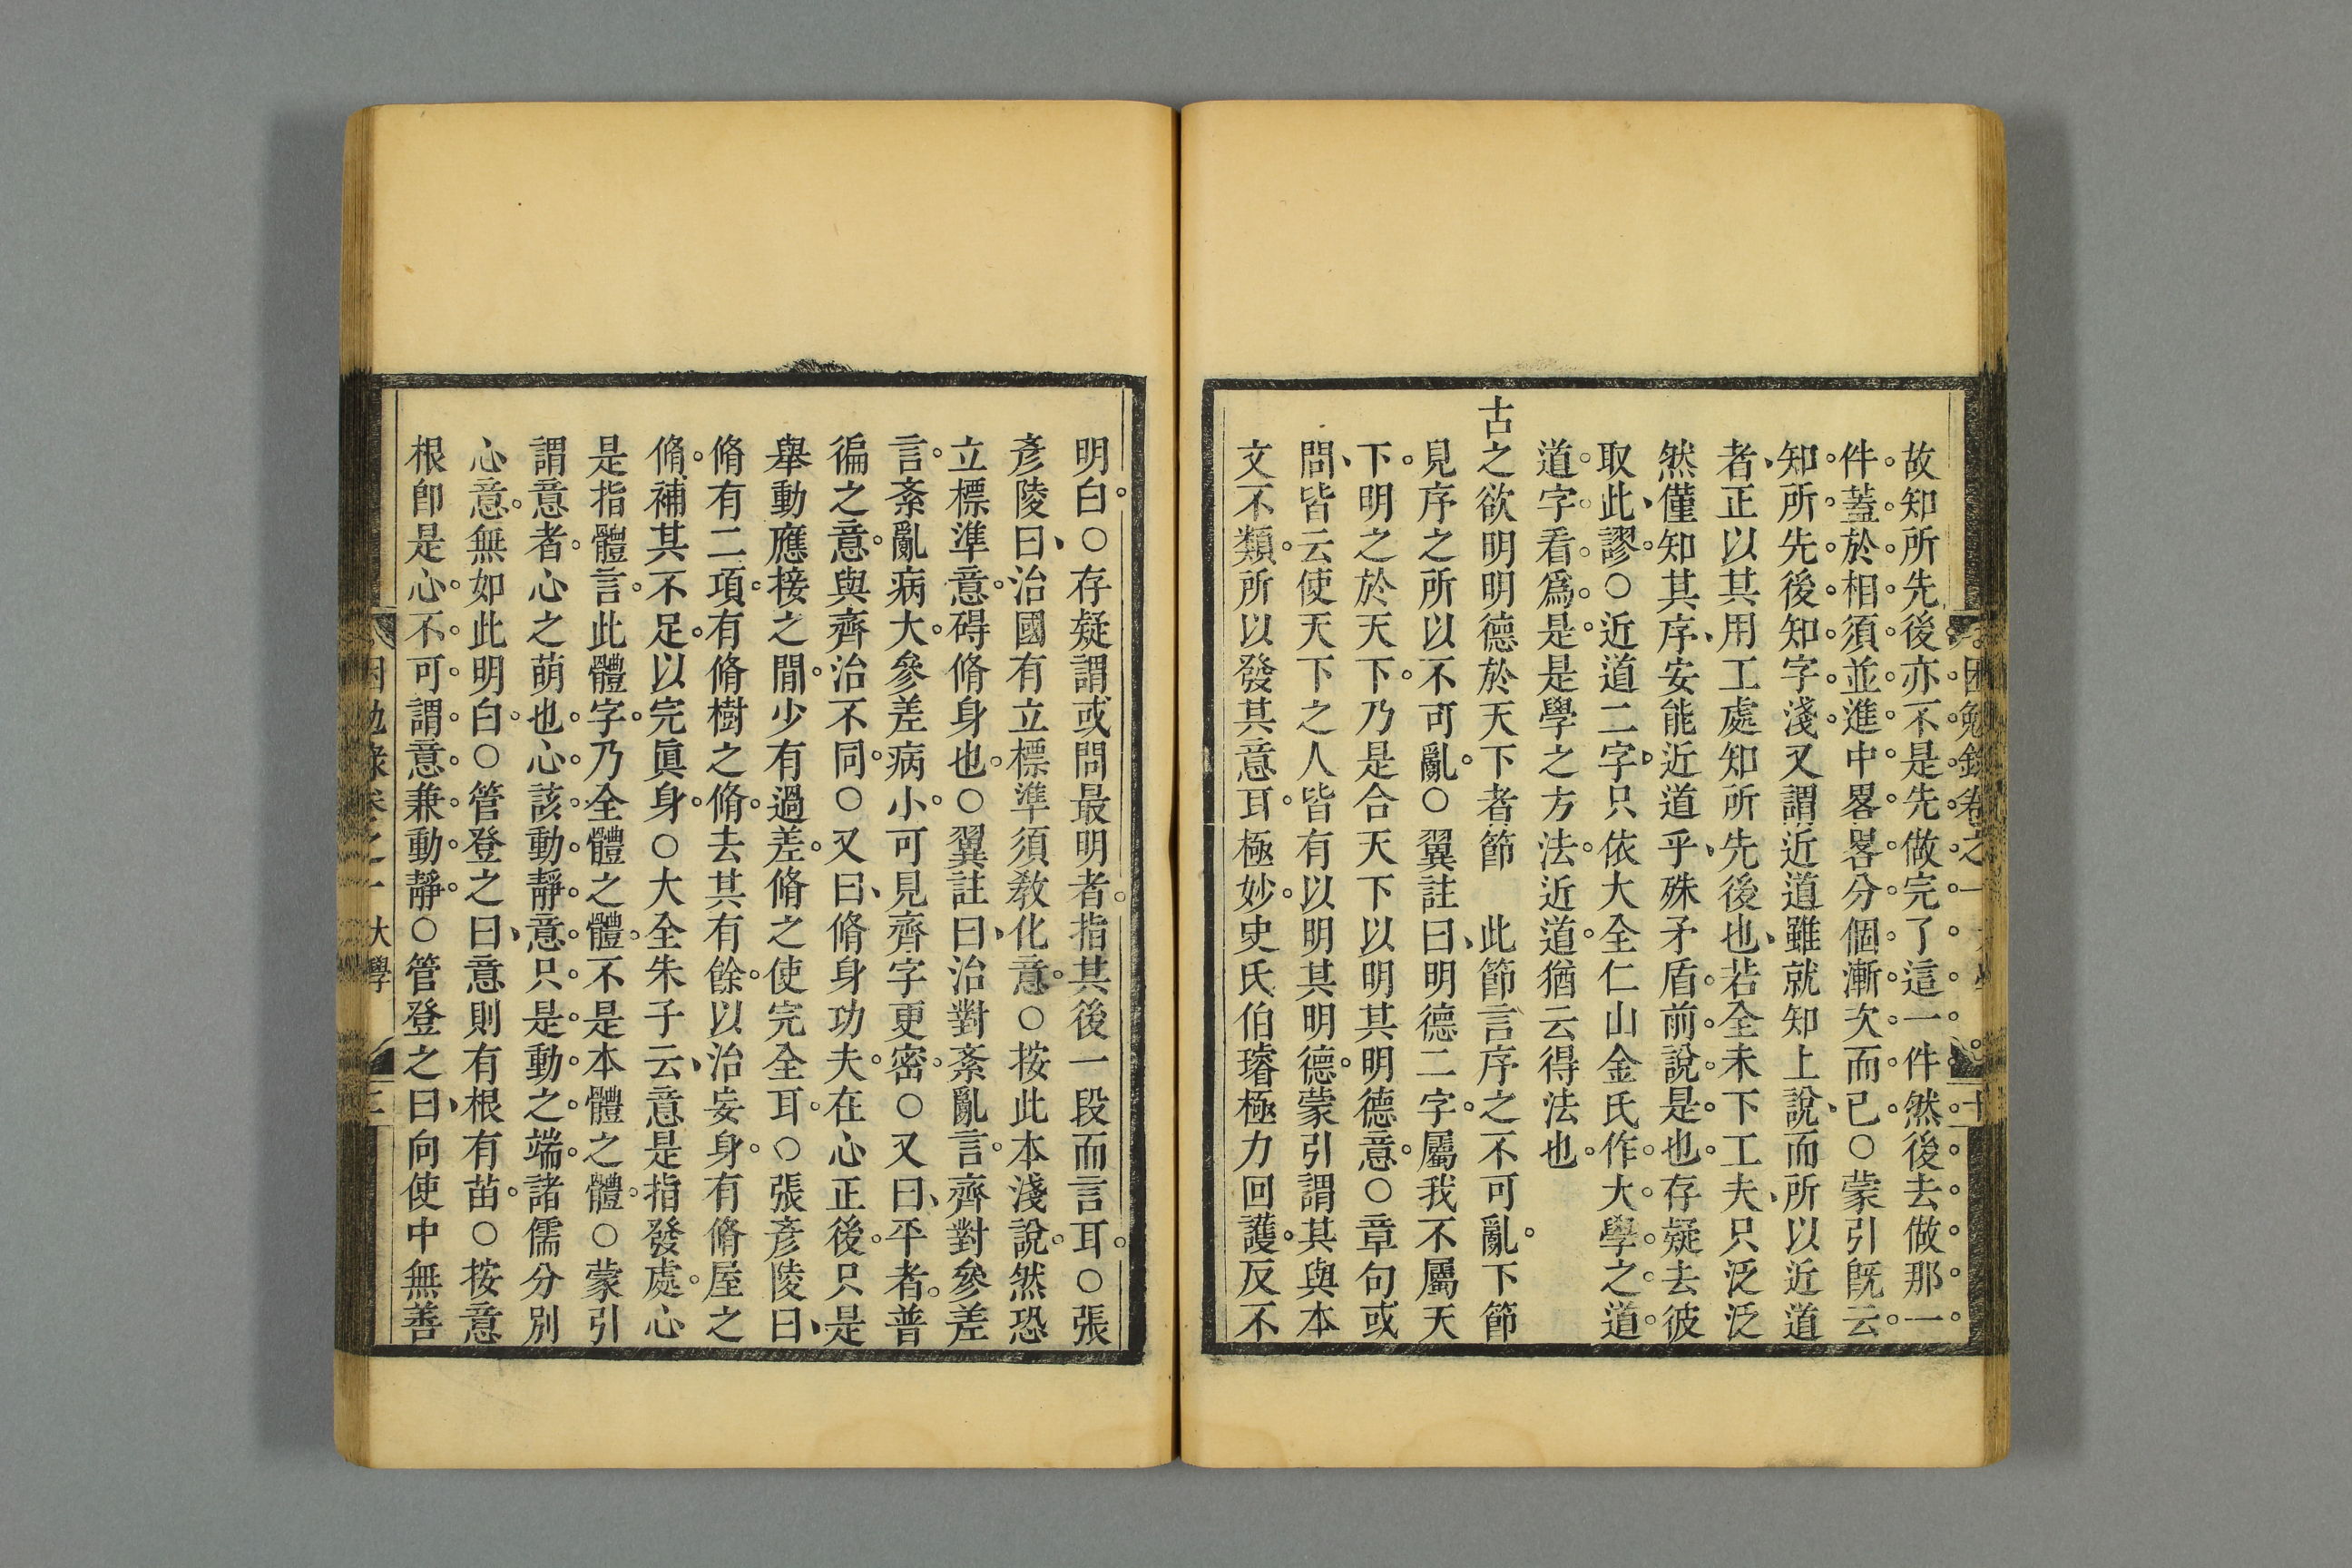 故知所先後亦不是先做完了這一件然後去做那一
件蓋於相須並進中畧畧分個漸次而已○蒙引既云
知所先後知字淺又謂近道雖就知上說而所以近道
者正以其用工處知所先後也若全未下工夫只泛泛
然僅知其序安能近道乎殊矛盾前說是也存疑去彼
取此謬○近道二字只依大全仁山金氏作大學之道
道字看爲是是學之方法近道猶云得法也
古之欲明明德於天下者節　此節言序之不可亂下節
見序之所以不可亂○翼註曰明德二字屬我不屬天
下明之於天下乃是合天下以明其明德意○章句或
問皆云使天下之人皆有以明其明德蒙引謂其與本
文不類所以發其意耳極妙史氏伯璿極力回護反不
明白○存疑謂或問最明者指其後一段而言耳○張
彥陵曰治國有立標準須敎化意○按此本淺說然恐
立標準意碍脩身也○翼註曰治對紊亂言齊對參差
言紊亂病大參差病小可見齊字更密○又曰平者普
徧之意與齊治不同○又曰脩身功夫在心正後只是
舉動應接之間少有過差脩之使完全耳○張彥陵曰
脩有二項有脩樹之脩去其有餘以治妄身有脩屋之
脩補其不足以完眞身○大全朱子云意是指發處心
是指體言此體字乃全體之體不是本體之體○蒙引
謂意者心之萌也心該動靜意只是動之端諸儒分別
心意無如此明白○管登之曰意則有根有苗○按意
根卽是心不可謂意兼動靜○管登之曰向使中無善
困勉錄卷之一　大學